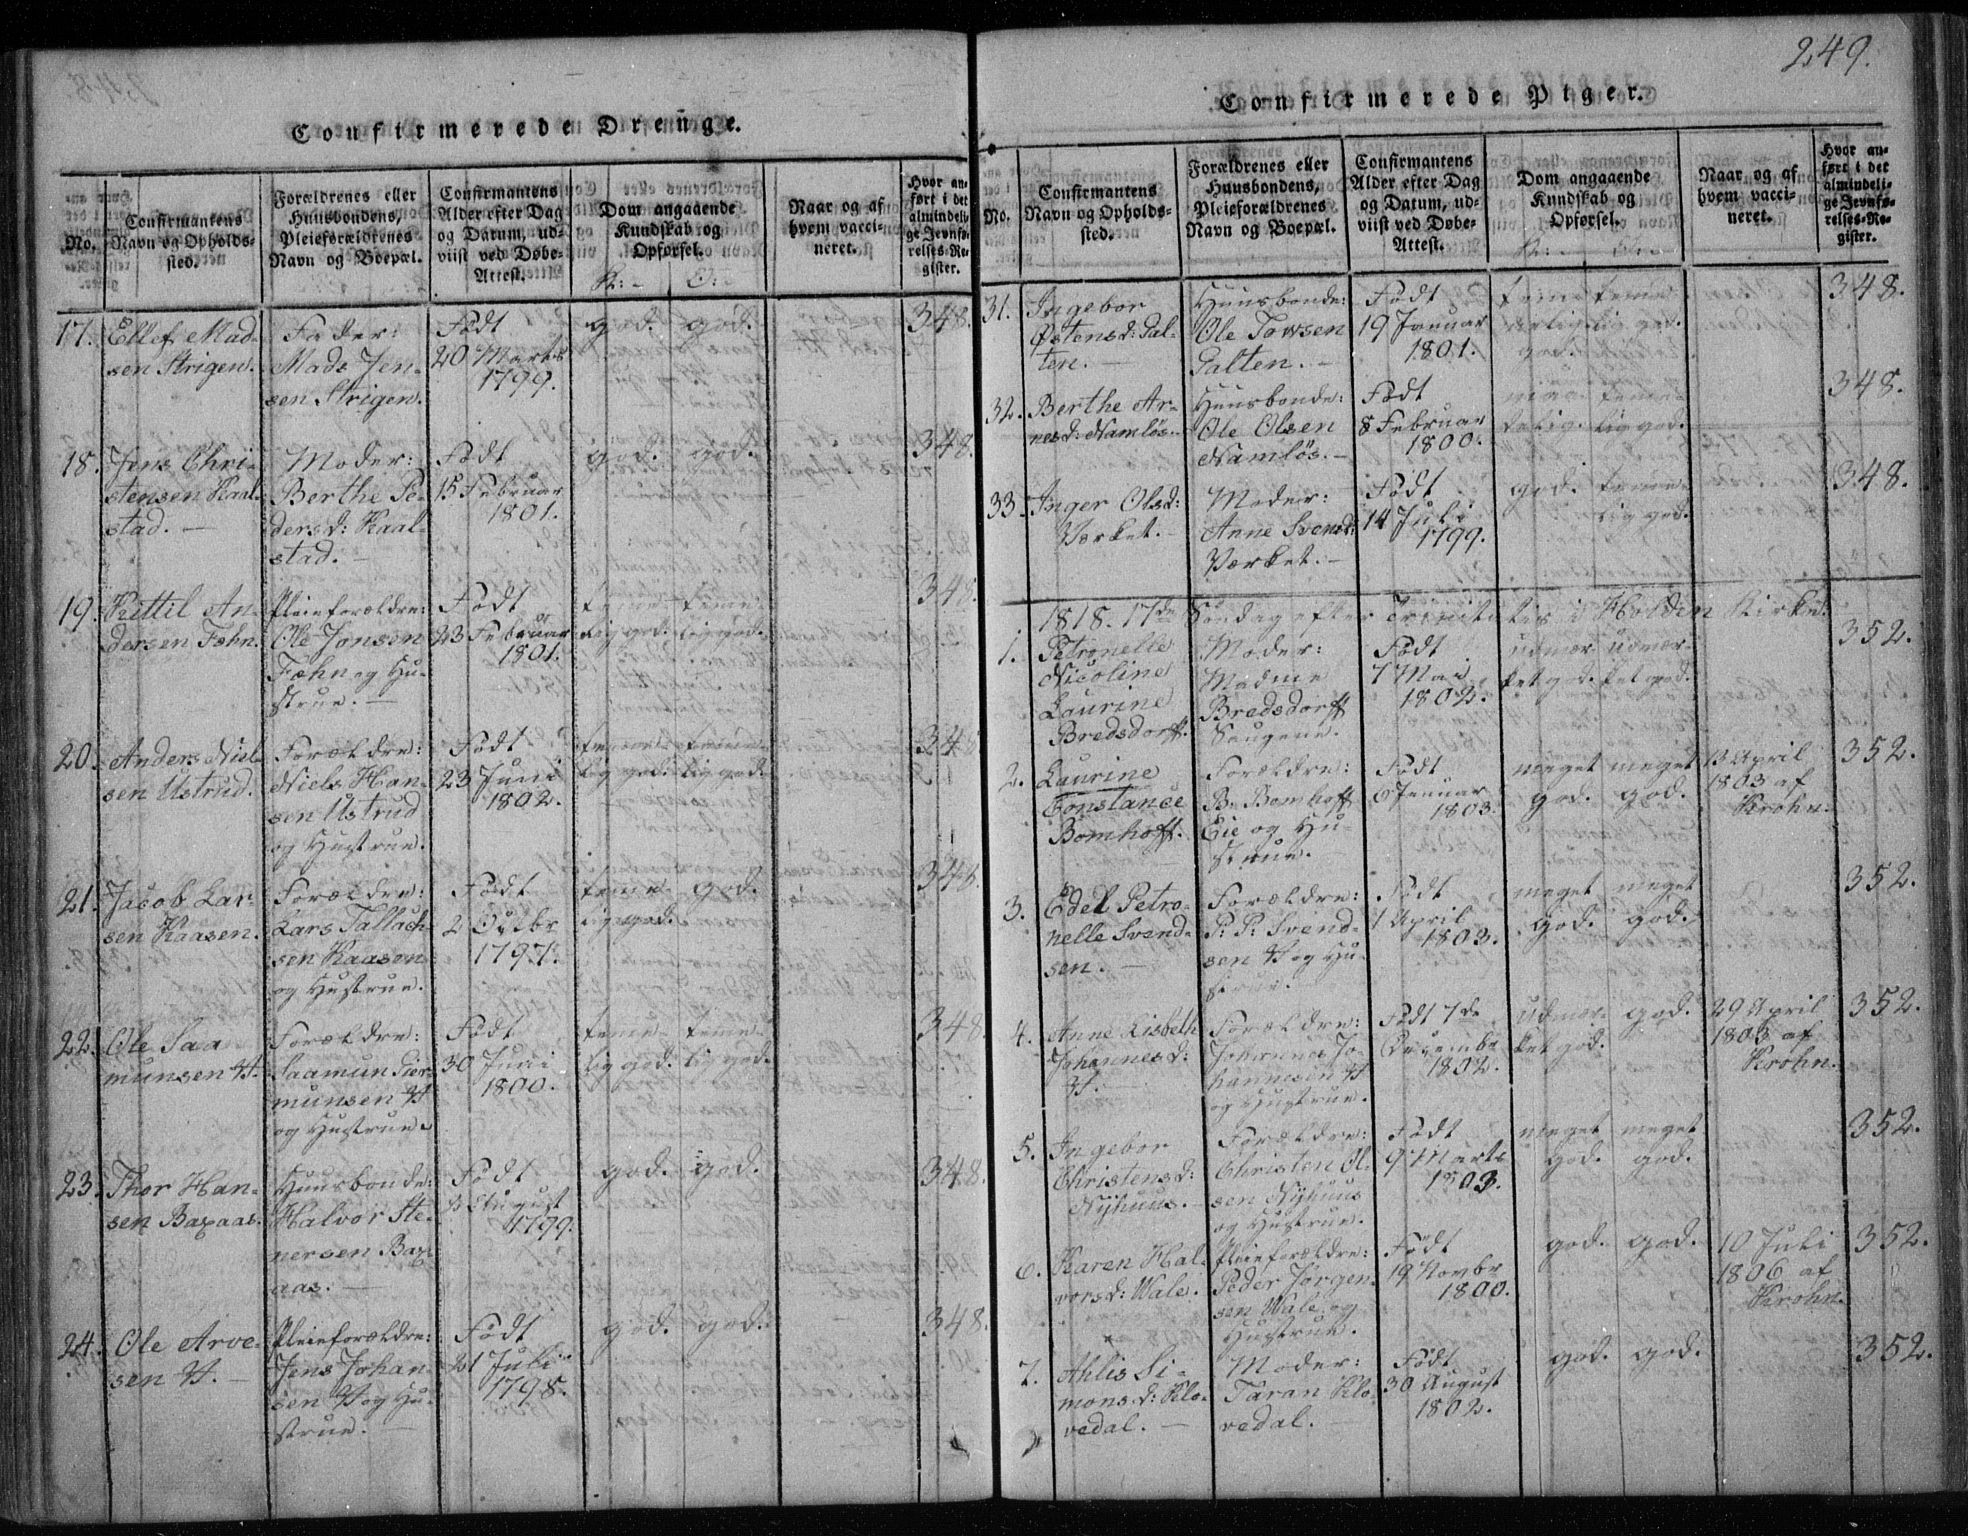 Confirmerede Drenge.
No.
Confirmantens
Navn og Opholds-
sted.
Forældrenes eller
Huusbondens,
Pleieforældrenes
Navn og Boepæl.
Confirmantens
Alder efter Dag
og Datum, ud-
viist ved Døbe-
Attest.
Dom angaaende
Kundskab og
Opførsel.
K: - O: -
Naar og af
hvem vacci-
neret.
Hvor an-
ført i det
almindeli-
ge Jevnfø-
relses-Re-
gister.
17.
Ellef Mad-
sen Strigen.
Fader:
Mads Jen-
sen Strigen.
Født
20 Marts
1799.
god. god.
348.
18.
Jens Chri-
stensen Kaal-
stad. —
Moder:
Berthe Pe-
dersd: Kaal-
stad. —
Født
15 Februar
1801.
god. god.
348.
19.
Kittil An-
dersen Føhn.
Pleieforældre:
Ole Jonsen
Fæhn og Hu-
strue. —
Født
23 Februar
1801.
teme- teme-
lig god. lig god.
348
20.
Anders Niel-
sen Ustrud.
Forældre:
Niels Han-
sen Ustrud
og Hustrue.
Født
23 Juni
1802.
teme- teme-
lig god. lig god.
348
21.
Jacob Lar-
sen Kaasen.
Forældre:
Lars Tallach-
sen Kaasen
og Hustrue.
Født
2 Octbr
1797.
teme- god.
lig god.
348.
22.
Ole Saa
munsen H.
Forældre:
Saamun Sier-
munsen H
og Hustrue.
Født
30 Juni
1800.
teme- teme-
lig god. lig god.
348.
23.
Thor Han-
sen Baxaas.
Huusbonde:
Halvor Ste-
nersen Bax-
aas. —
Født
August
1799.
god. god.
348.
24.
Ole Arve-
sen H. —
Pleieforældre:
Jens Johan-
sen H og Hu-
strue. —
Født
21 Juli
1798.
god. god.
348.
249.
Confirmerede Piger.
No.
Confirmantens
Navn og Opholds-
sted.
Forældrenes eller
Huusbondens,
Pleieforældrenes
Navn og Boepæl.
Confirmantens
Alder efter Dag
og Datum, ud-
viist ved Døbe-
Attest.
Dom angaaende
Kundskab og
Opførsel.
K: - O: -
Naar og af
hvem vacci-
neret.
Hvor an-
ført i det
almindeli-
ge Jevnfø-
relses-Re-
gister.
31.
Ingebor
Østensd: Gal-
ten. —
Huusbonde:
Ole Tovsen
Galten. —
Født
19 Januar
1801.
god.
348.
32.
Berthe Ar-
nesd: Namløs.
Huusbonde:
Ole Olsen
Namløs. —
Født
8 Februar
1800.
maa- teme-
delig. lig god.
348.
33.
Inger Olsd:
Værket. —
Moder:
Anne Svensd:
Værket. —
Født
14 Juli
1799.
god. teme-
lig god.
348.
1818. 17de Søndag efter Trinitatis i Holden Kirke.
1.
Petronelle
Nicoline
Laurine
Bredsdorff.
Moder:
Madme
Bredsdorff
Saugene.
Født
7 Mai
1802.
udmær- udmær-
ket god. ket god.
352.
2.
Laurine
Constance
Bomhoff.
Forældre:
B. Bomhoff
Eie og Hu-
strue.
Født
6 Januar
1803.
meget meget
god. god.
13 April
1803 af
Krohn.
352.
3.
Edel Petro-
nelle Svend-
sen. —
Forældre:
P: P: Svend-
sen H og Hu-
strue. —
Født
1 April
1803.
meget meget
god. god.
352.
4.
Anne Lisbeth
Johannesd:
H.
Forældre:
Johannes Jo-
hannesen H
og Hustrue.
Født 7de
Decembr
1802.
udmær- god.
ket god.
29 April
1803 af
Krohn.
352.
5.
Ingebor
Christensd:
Nyhuus. —
Forældre:
Christen Ol-
sen Nyhuus
og Hustrue.
Født
9 Marts
1803.
meget meget
god. god.
352.
6.
Karen Hal-
vorsd: Wale.
Pleieforældre:
Peder Jørgen-
sen Wale og
Hustrue.
Født
19 Novbr
1800.
god. god.
10 Juli
1806 af
Krohn.
352.
7.
Ahlis Si-
monsd: Klo-
vedal. —
Moder:
Taran Klo-
vedal. —
Født
30 August
1802.
god. god.
352.